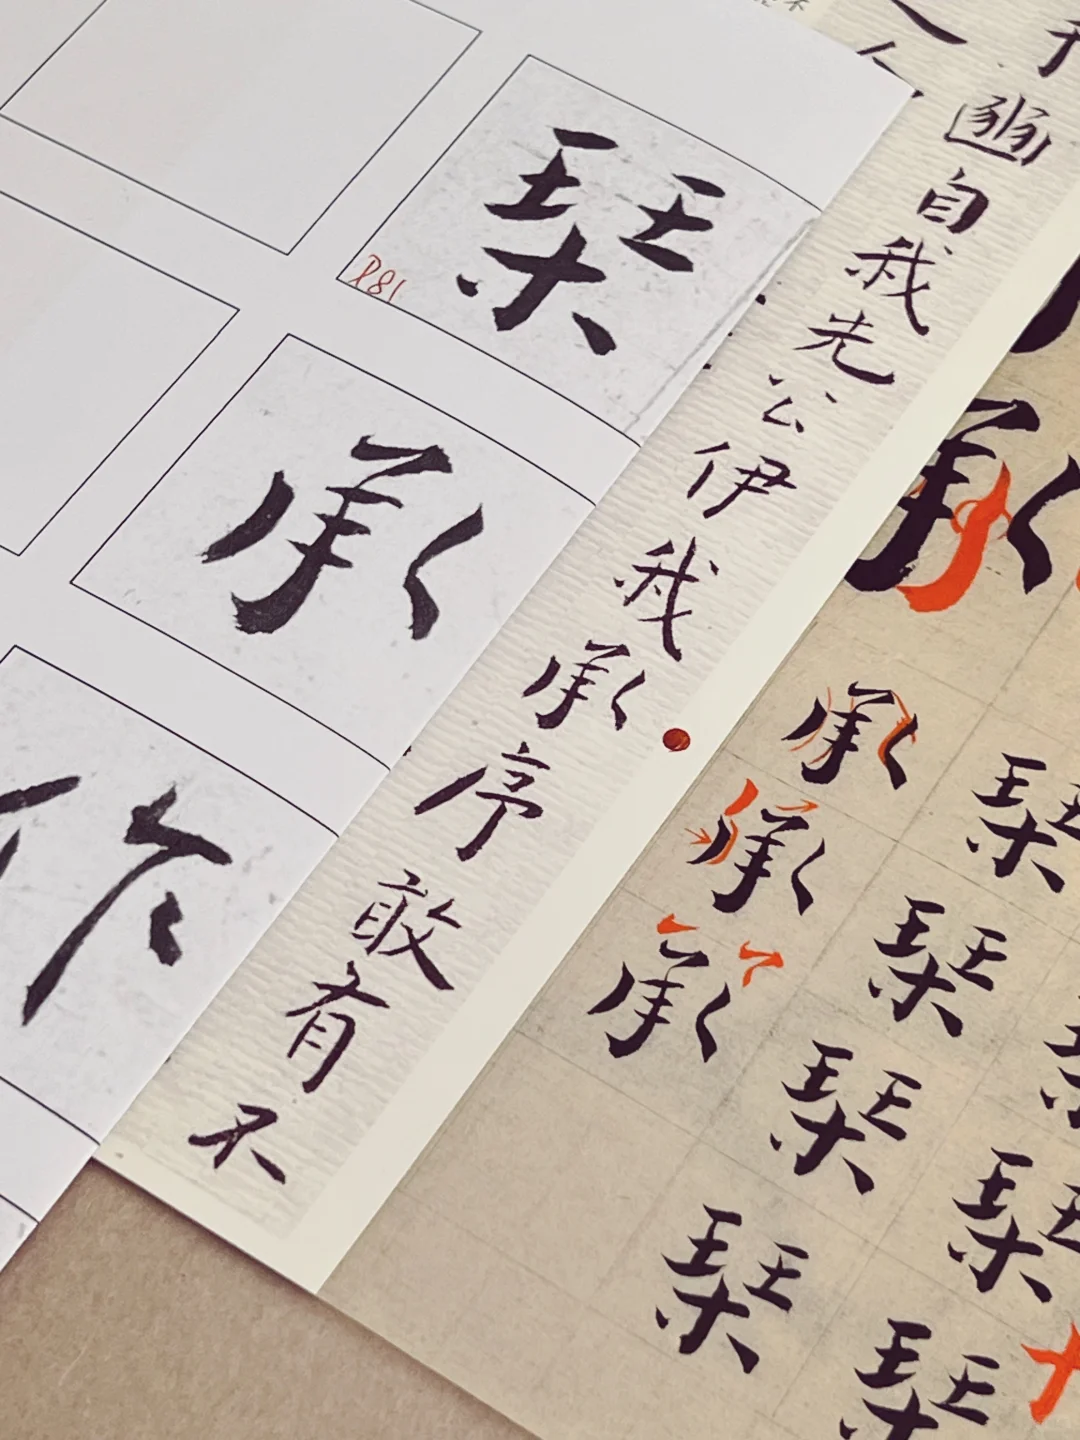 琹琹琹
琹琹琹琹
承
承承承
于豳自我先公伊我承序敢有不
琹
P81
承
作